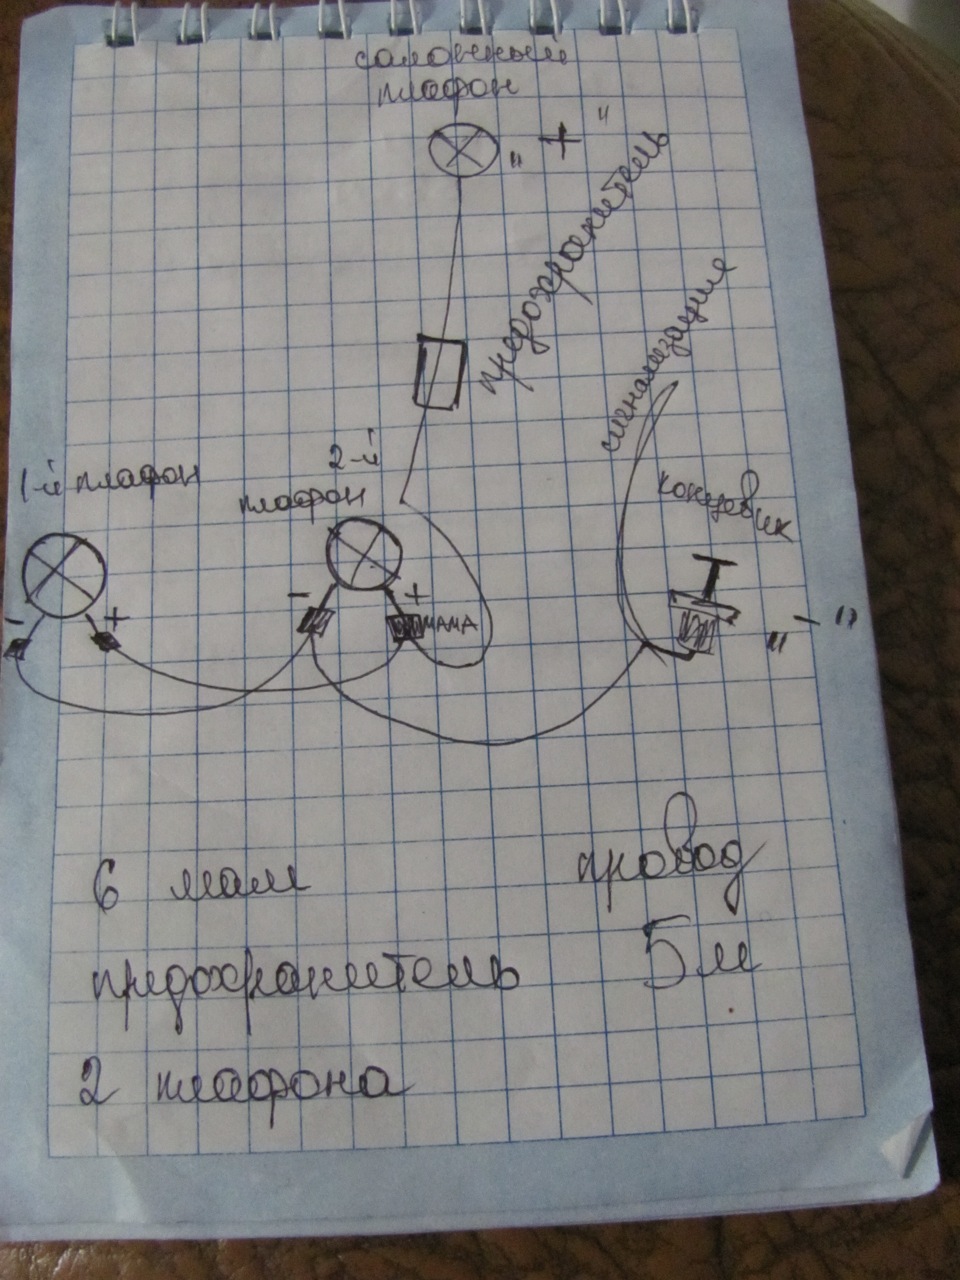 салонный
плафон
" + "
предохранитель
сигнализация
концевик
1-й плафон
2-й
плафон
- +
- +
МАМА
" - "
6 мам
провод
предохранитель
5 м
2 плафона